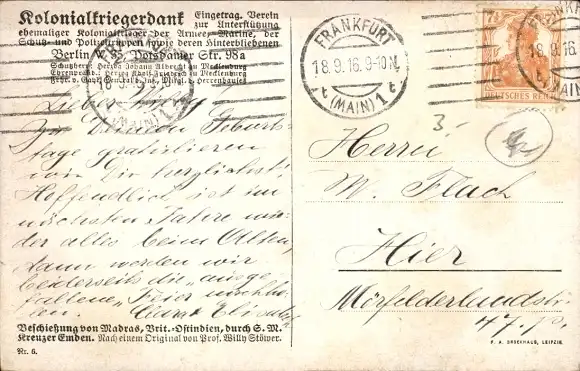 Kolonialkriegerdank Eingetrag. Verein
zur Unterstützung
ehemaliger Kolonialkrieger der Armee, Marine, der
Schutz- und Polizeitruppen sowie deren Hinterbliebenen
Berlin W. Potsdamer Str. 98a
Schutzherr: Herzog Johann Albrecht zu Mecklenburg
Ehrenpräsid.: Herzog Adolf Friedrich zu Mecklenburg
FRANKFURT
18.9.16.9-10 N.
(MAIN) 1
t t
7½
DEUTSCHES REICH
3-
Lieber
Zu Deinem Geburts-
tage gratulieren
wir Dir herzlichst.
Hoffendlich ist im
nächsten Jahre wie-
der alles beim Alten,
dann werden wir
beiderseits die „ausge-
fallene" Feier nachho-
len.
Herrn
W. Flach
Hier
Mörfelderlandstr.
47. p.
Beschießung von Madras, Brit.-Ostindien, durch S. M.
Kreuzer Emden. Nach einem Original von Prof. Willy Stöwer.
Nr. 6.
F. A. BROCKHAUS, LEIPZIG.